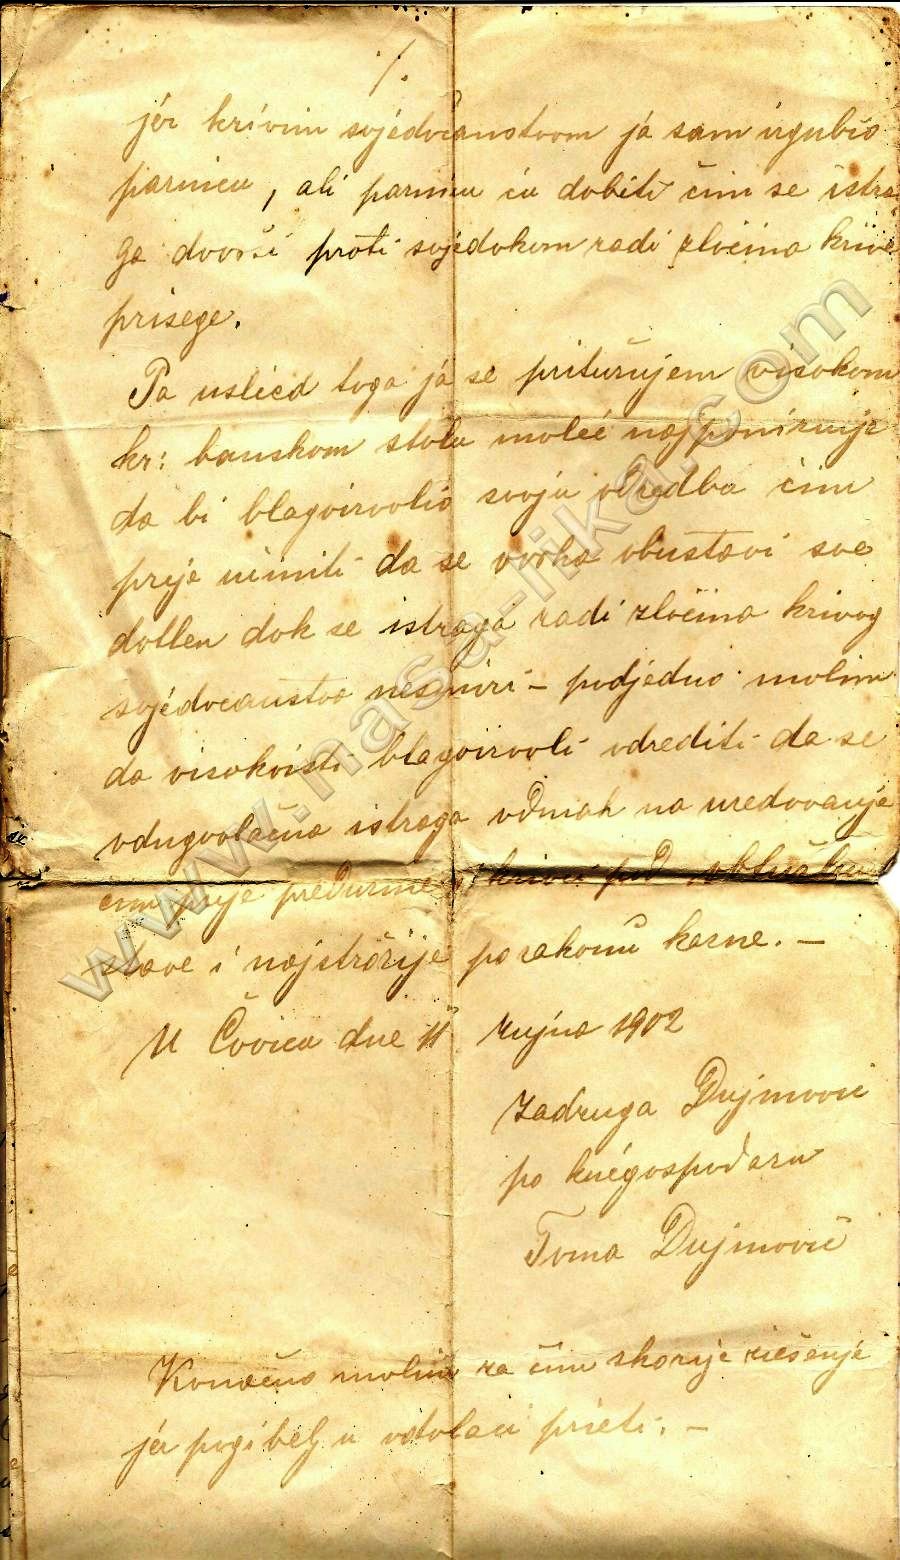 /.
jér krivim svjédočanstvom já sam izgubio
parnicu, ali parnicu ću dobiti čim se istra
ga dovrši proti svjédokom radi zločina krive
prisege.
Pa uslied toga já se pritužujem visokom
kr: banskom stolu moleć najponiznije
da bi blagoizvolio svoju odredbu čim
prije učiniti da se ovrha obustavi sve
dotlen dok se istraga radi zločina krivog
svjédočanstva nesmiri – podjedno molim
da visokoisti blagoizvoli odrediti da se
odugovlačna istraga odmah na uredovanje
čim prije preduzme i krivci pod
stave i najstrožije po zakonu kazne. –
U Čovicu dne 11 rujna 1902
Zadruga Dujmović
po kućegospodaru
Toma Dujmović
Konačno molim za čim skorije riešenje
jér pogibelj u odvlaci prieti. –
www.nasa-lika.com